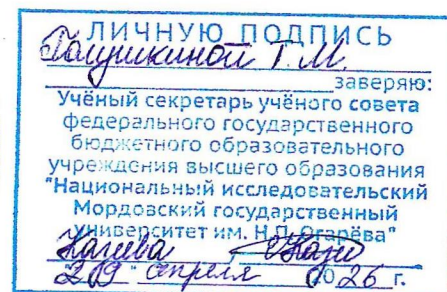 ЛИЧНУЮ ПОДПИСЬ
Т.М.
заверяю:
Учёный секретарь учёного совета
федерального государственного
бюджетного образовательного
учреждения высшего образования
"Национальный исследовательский
Мордовский государственный
университет им. Н.П. Огарёва"
"29" апреля 2026 г.